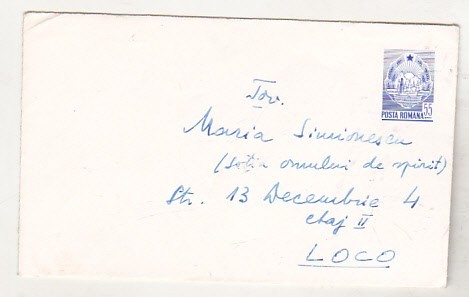 55
POSTA ROMANA
Tov.
Maria Simionescu
(soția omului de spirit)
Str. 13 Decembrie 4
etaj II
LOCO